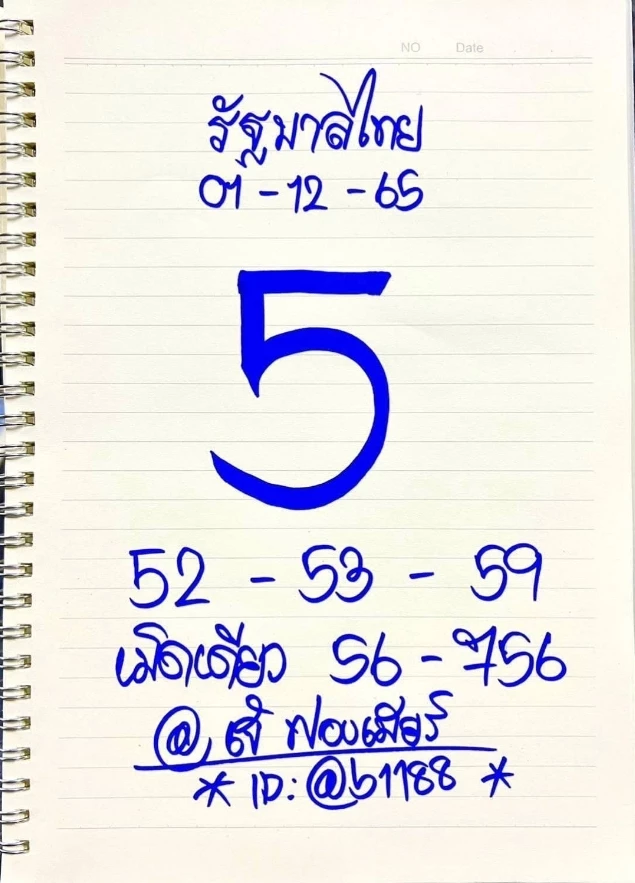 NO Date
รัฐบาลไทย
01-12-65
5
52 - 53 - 59
เม็ดเดียว 56 - 756
@ เจ๊ ฟองเบียร์
* ID: @b1188 *